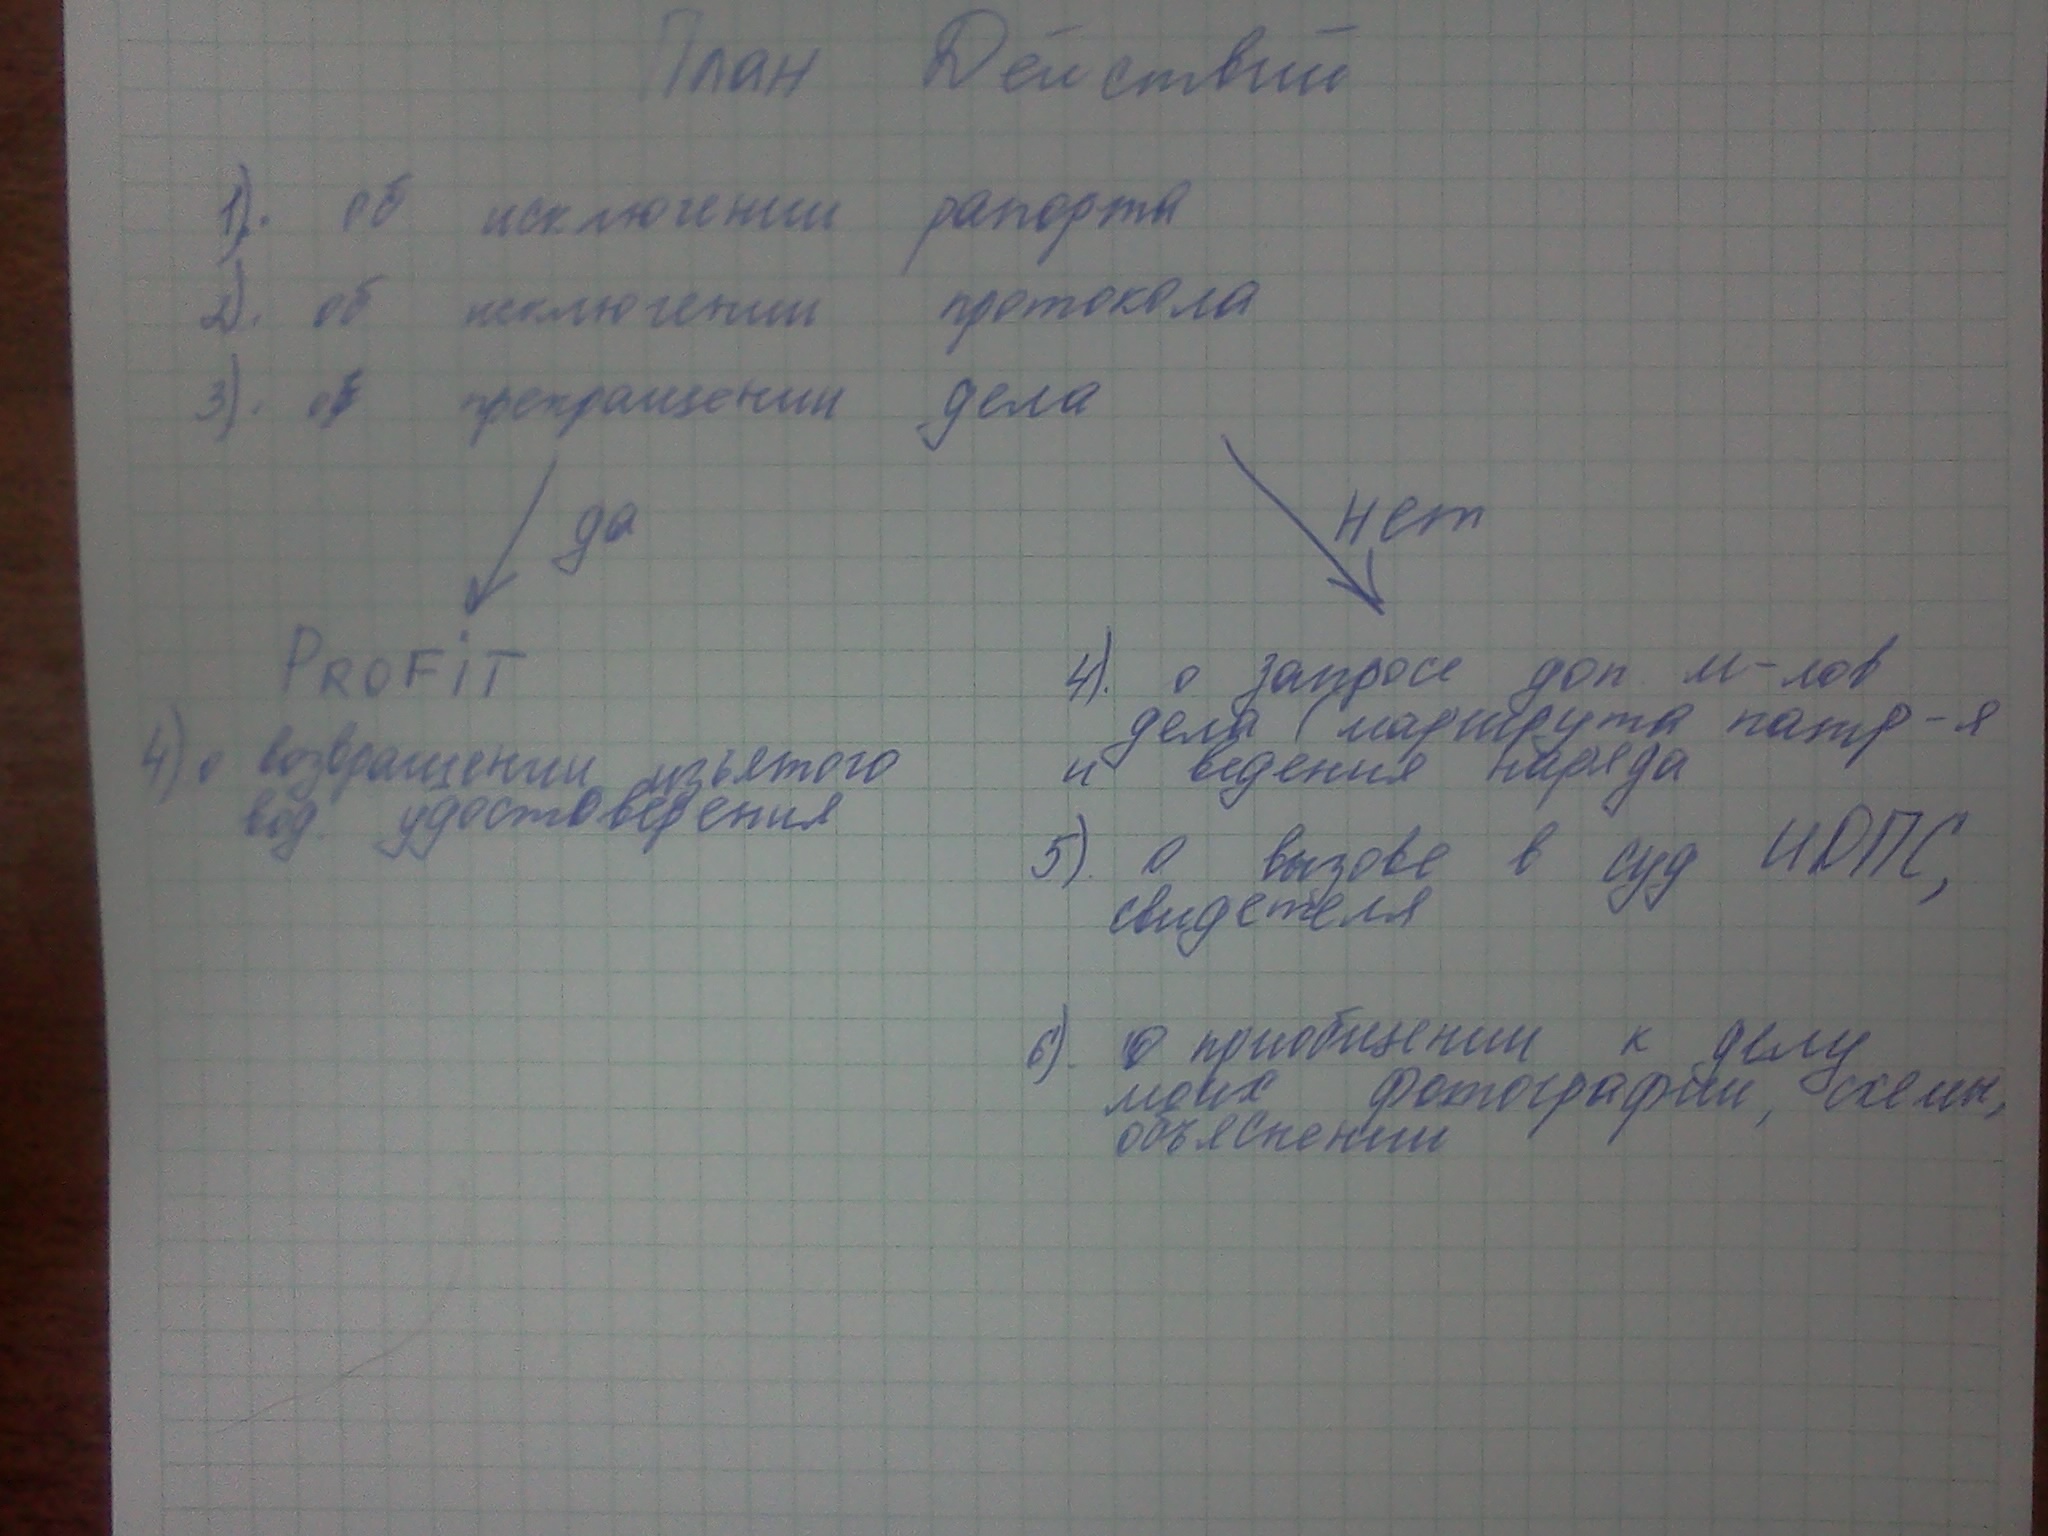 План Действий
1). об исключении рапорта
2). об исключении протокола
3). об прекращении дела
да
нет
PROFiT
4) о возвращении изъятого
вод. удостоверения
4). о запросе доп. м-лов
дела (маршрута патр-я
и ведения наряда
5). о вызове в суд ИДПС,
свидетеля
6). о приобщении к делу
моих фотографий, схемы,
объяснений